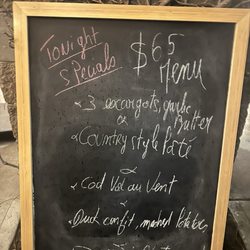 Tonight
Specials
$65
Menu
3 escargots, garlic
Butter
or
Country style Paté
or
Cod Vol au Vent
or
Duck confit, mashed Potatoes,